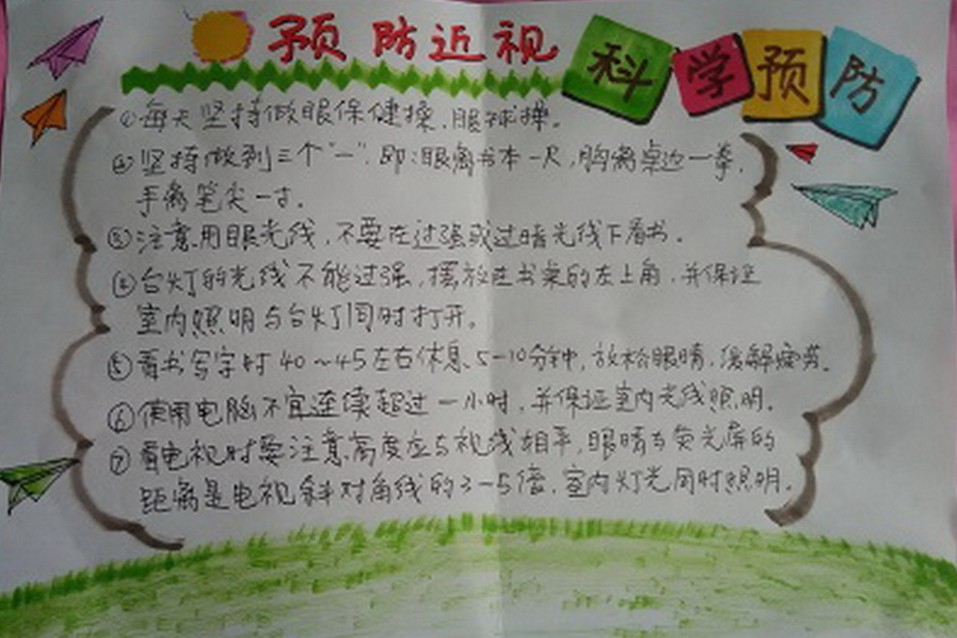 预防近视
科学预防
①每天坚持做眼保健操、眼球操。
②坚持做到三个"一",即:眼离书本一尺,胸离桌边一拳,
手离笔尖一寸。
③注意用眼光线,不要在过强或过暗光线下看书。
④台灯的光线不能过强,摆放在书桌的左上角,并保证
室内照明与台灯同时打开。
⑤看书写字时40~45左右休息5-10分钟,放松眼睛,缓解疲劳。
⑥使用电脑不宜连续超过一小时,并保证室内光线照明。
⑦看电视时要注意高度应与视线相平,眼睛与荧光屏的
距离是电视斜对角线的3-5倍,室内灯光同时照明。